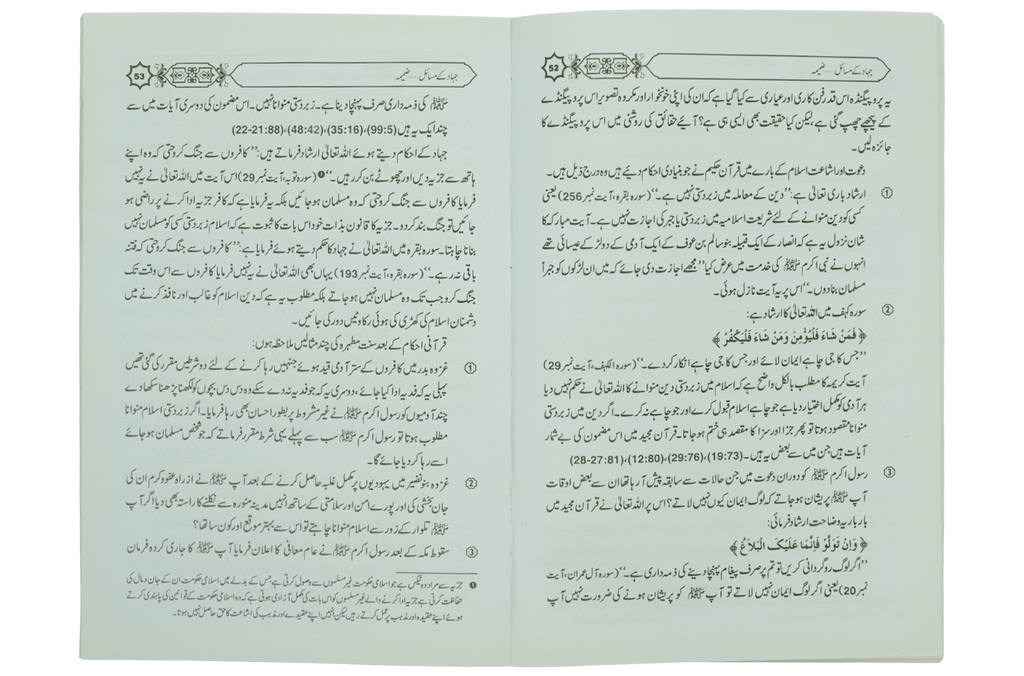 52
جہاد کے مسائل — ضمیمہ
یہ پروپیگنڈہ اس قدر فن کاری اور عیاری سے کیا گیا ہے کہ ان کی اپنی خونخوار اور مکروہ تصویر اس پروپیگنڈے
کے پیچھے چھپ گئی ہے لیکن کیا حقیقت بھی ایسی ہی ہے؟ آئیے حقائق کی روشنی میں اس پروپیگنڈے کا
جائزہ لیں۔
دعوت اور اشاعت اسلام کے بارے میں قرآن حکیم نے جو بنیادی احکام دیئے ہیں وہ درج ذیل ہیں۔
① ارشاد باری تعالیٰ ہے:’’دین کے معاملہ میں زبردستی نہیں ہے۔‘‘(سورہ بقرہ، آیت نمبر 256) یعنی
کسی کو دین منوانے کے لئے شریعت اسلامیہ میں زبردستی یا جبر کی اجازت نہیں ہے۔ آیت مبارکہ کا
شان نزول یہ ہے کہ انصار کے ایک قبیلہ بنو سالم بن عوف کے ایک آدمی کے دو لڑکے عیسائی تھے
انہوں نے نبی اکرم ﷺ کی خدمت میں عرض کیا’’مجھے اجازت دی جائے کہ میں ان لڑکوں کو جبراً
مسلمان بنادوں۔‘‘ اس پر یہ آیت نازل ہوئی۔
② سورہ کہف میں اللہ تعالیٰ کا ارشاد ہے:
﴿ فَمَنْ شَاءَ فَلْيُؤْمِنْ وَمَنْ شَاءَ فَلْيَكْفُرْ ﴾
’’جس کا جی چاہے ایمان لائے اور جس کا جی چاہے انکار کردے۔‘‘ (سورۃ الکہف، آیت نمبر 29)
آیت کریمہ کا مطلب بالکل واضح ہے کہ اسلام میں زبردستی دین منوانے کا اللہ تعالیٰ نے حکم نہیں دیا
ہر آدمی کو مکمل اختیار دیا ہے جو چاہے اسلام قبول کرے اور جو چاہے نہ کرے۔ اگر دین میں زبردستی
منوانا مقصود ہوتا تو پھر جزا اور سزا کا مقصد ہی ختم ہو جاتا۔ قرآن مجید میں اس مضمون کی بے شمار
آیات ہیں جن میں سے بعض یہ ہیں۔ (19:73)، (29:76)، (12:80)، (28-27:81)
③ رسول اکرم ﷺ کو دوران دعوت میں جن حالات سے سابقہ پیش آرہا تھا ان سے بعض اوقات
آپ ﷺ پریشان ہو جاتے کہ لوگ ایمان کیوں نہیں لاتے؟ اس پر اللہ تعالیٰ نے قرآن مجید میں
بار بار یہ وضاحت ارشاد فرمائی:
﴿ وَاِنْ تَوَلَّوْ فَاِنَّمَا عَلَيْكَ الْبَلَاغُ ﴾
’’اگر لوگ روگردانی کریں تو تم پر صرف پیغام پہنچا دینے کی ذمہ داری ہے۔‘‘ (سورہ آل عمران، آیت
نمبر 20) یعنی اگر لوگ ایمان نہیں لاتے تو آپ ﷺ کو پریشان ہونے کی ضرورت نہیں آپ
53
جہاد کے مسائل — ضمیمہ
ﷺ کی ذمہ داری صرف پہنچا دینا ہے۔ زبردستی منوانا نہیں۔ اس مضمون کی دوسری آیات میں سے
چند ایک یہ ہیں (99:5)، (35:16)، (48:42)، (22-21:88)
جہاد کے احکام دیتے ہوئے اللہ تعالیٰ ارشاد فرماتے ہیں: ’’کافروں سے جنگ کرو حتی کہ وہ اپنے
ہاتھ سے جزیہ دیں اور چھوٹے بن کر رہیں۔‘‘❶ (سورہ توبہ، آیت نمبر 29) اس آیت میں اللہ تعالیٰ نے یہ نہیں
فرمایا کافروں سے جنگ کرو حتی کہ وہ مسلمان ہو جائیں بلکہ یہ فرمایا ہے کہ کافر جزیہ ادا کرنے پر راضی ہو
جائیں تو جنگ بند کردو۔ جزیہ کا قانون بذات خود اس بات کا ثبوت ہے کہ اسلام زبردستی کسی کو مسلمان نہیں
بنانا چاہتا۔ سورہ بقرہ میں اللہ تعالیٰ نے جہاد کا حکم دیتے ہوئے فرمایا ہے: ’’کافروں سے جنگ کرو حتی کہ فتنہ
باقی نہ رہے۔‘‘ (سورہ بقرہ، آیت نمبر 193) یہاں بھی اللہ تعالیٰ نے یہ نہیں فرمایا کافروں سے اس وقت تک
جنگ کرو جب تک وہ مسلمان نہیں ہو جاتے بلکہ مطلوب یہ ہے کہ دین اسلام کو غالب اور نافذ کرنے میں
دشمنان اسلام کی کھڑی کی ہوئی رکاوٹیں دور کی جائیں۔
قرآنی احکام کے بعد سنت مطہرہ کی چند مثالیں ملاحظہ ہوں:
① غزوہ بدر میں کافروں کے ستر آدمی قید ہوئے جنہیں رہا کرنے کے لئے دو شرطیں مقرر کی گئی تھیں
پہلی یہ کہ فدیہ ادا کیا جائے، دوسری یہ کہ جو فدیہ نہ دے سکے وہ دس دس بچوں کو لکھنا پڑھنا سکھا دے
چند آدمیوں کو رسول اکرم ﷺ نے غیر مشروط پر بطور احسان بھی رہا فرمایا۔ اگر زبردستی اسلام منوانا
مطلوب ہوتا تو رسول اکرم ﷺ سب سے پہلے یہی شرط مقرر فرماتے کہ جو شخص مسلمان ہو جائے
اسے رہا کر دیا جائے گا۔
② غزوہ بنو نضیر میں یہودیوں پر مکمل غلبہ حاصل کرنے کے بعد آپ ﷺ نے از راہ عفو و کرم ان کی
جان بخشی کی اور پورے امن اور سلامتی کے ساتھ انہیں مدینہ منورہ سے نکلنے کا راستہ بھی دیا اگر آپ
ﷺ تلوار کے زور سے اسلام منوانا چاہتے تو اس سے بہتر موقع اور کون سا تھا؟
③ سقوط مکہ کے بعد رسول اکرم ﷺ نے عام معافی کا اعلان فرمایا آپ ﷺ کا جاری کردہ فرمان
❶ جزیہ سے مراد وہ ٹیکس ہے جو اسلامی حکومت غیر مسلموں سے وصول کرتی ہے جس کے بدلے میں اسلامی حکومت ان کے جان و مال کی
حفاظت کرتی ہے جزیہ ادا کرنے والے غیر مسلموں کو اس بات کی مکمل آزادی ہوتی ہے کہ وہ اسلامی حکومت کے قوانین کی پابندی کرتے
ہوئے اپنے عقیدہ اور مذہب پر عمل کرتے رہیں لیکن انہیں اپنے عقیدے اور مذہب کی اشاعت کا حق حاصل نہیں ہوتا۔